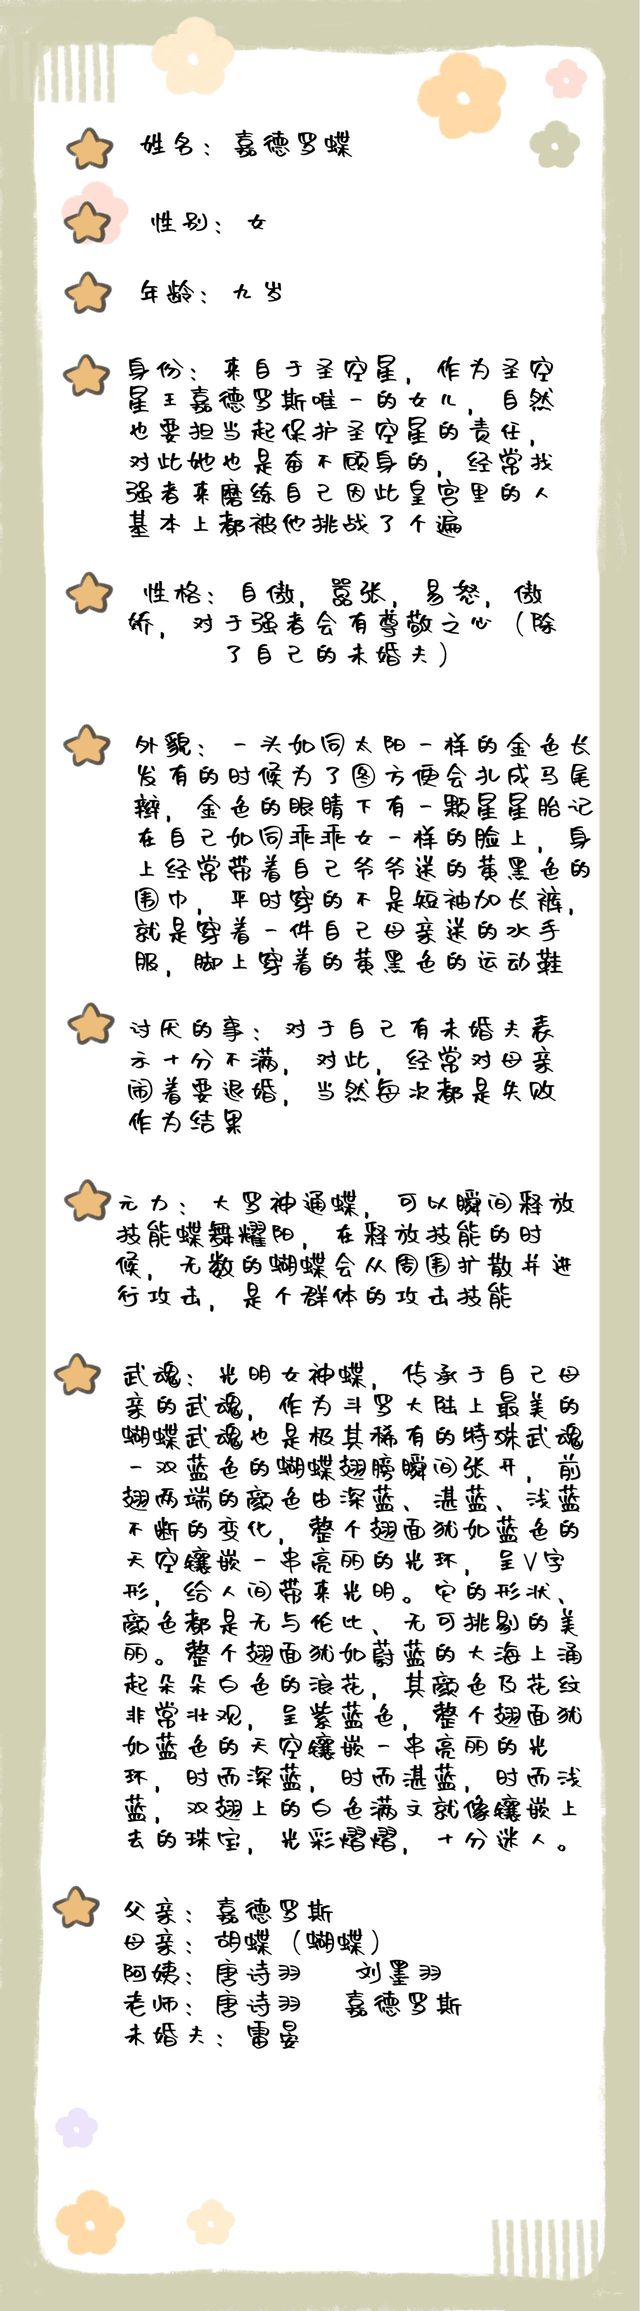 姓名：嘉德罗蝶
性别：女
年龄：九岁
身份：来自于圣空星，作为圣空
星王嘉德罗斯唯一的女儿，自然
也要担当起保护圣空星的责任，
对此她也是奋不顾身的，经常找
强者来磨练自己因此皇宫里的人
基本上都被他挑战了个遍
性格：自傲，嚣张，易怒，傲
娇，对于强者会有尊敬之心（除
了自己的未婚夫）
外貌：一头如同太阳一样的金色长
发有的时候为了图方便会扎成马尾
辫，金色的眼睛下有一颗星星胎记
在自己如同乖乖女一样的脸上，身
上经常带着自己爷爷送的黄黑色的
围巾，平时穿的不是短袖加长裤，
就是穿着一件自己母亲送的水手
服，脚上穿着的黄黑色的运动鞋
讨厌的事：对于自己有未婚夫表
示十分不满，对此，经常对母亲
闹着要退婚，当然每次都是失败
作为结果
元力：大罗神通蝶，可以瞬间释放
技能蝶舞耀阳，在释放技能的时
候，无数的蝴蝶会从周围扩散并进
行攻击，是个群体的攻击技能
武魂：光明女神蝶，传承于自己母
亲的武魂，作为斗罗大陆上最美的
蝴蝶武魂也是极其稀有的特殊武魂
一双蓝色的蝴蝶翅膀瞬间张开，前
翅两端的颜色由深蓝、湛蓝、浅蓝
不断的变化，整个翅面犹如蓝色的
天空镶嵌一串亮丽的光环，呈V字
形，给人间带来光明。它的形状、
颜色都是无与伦比、无可挑剔的美
丽。整个翅面犹如蔚蓝的大海上涌
起朵朵白色的浪花，其颜色及花纹
非常壮观，呈紫蓝色，整个翅面犹
如蓝色的天空镶嵌一串亮丽的光
环，时而深蓝，时而湛蓝，时而浅
蓝，双翅上的白色满文就像镶嵌上
去的珠宝，光彩熠熠，十分迷人。
父亲：嘉德罗斯
母亲：胡蝶（蝴蝶）
阿姨：唐诗羽 刘墨羽
老师：唐诗羽 嘉德罗斯
未婚夫：雷晏